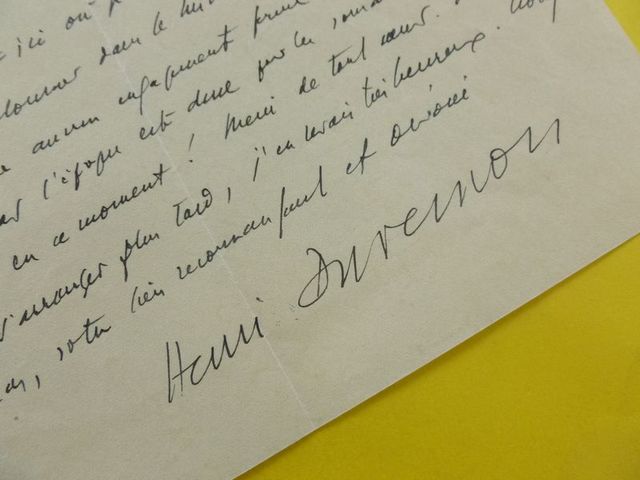 ici où
dans le
aucun engagement
l'époque est dure pour les
en ce moment ! Merci de tout cœur.
s'arranger plus tard, j'en serais très heureux.
votre bien reconnaissant et dévoué
Henri Duvernois